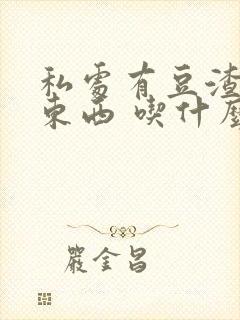 私處有豆渣
東西 喫什麼
嚴金昌